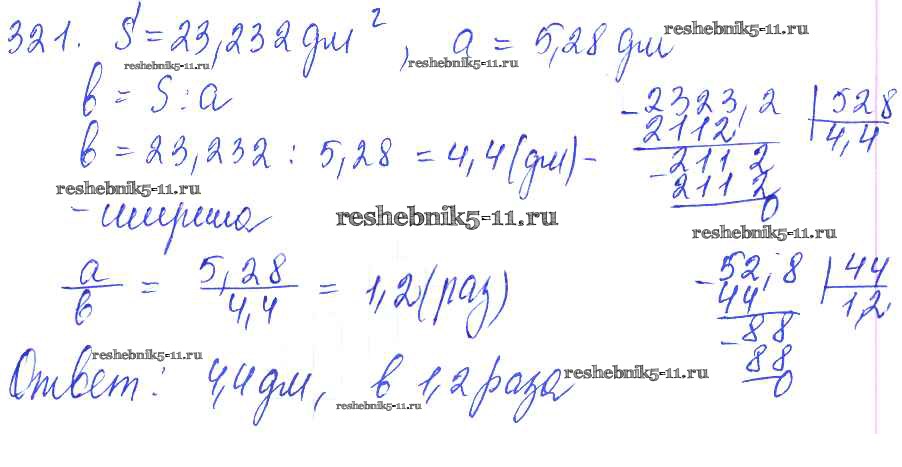 321. S = 23,232 дм², a = 5,28 дм
reshebnik5-11.ru
reshebnik5-11.ru
reshebnik5-11.ru
в = S : a
в = 23,232 : 5,28 = 4,4 (дм) -
- ширина
-2323,2 | 528
2112 4,4
-2112
2112
0
reshebnik5-11.ru
reshebnik5-11.ru
reshebnik5-11.ru
a/в = 5,28/4,4 = 1,2 (раз)
-52,8 | 44
44 1,2
-88
88
0
reshebnik5-11.ru
Ответ: 4,4 дм, в 1,2 раза
reshebnik5-11.ru
reshebnik5-11.ru